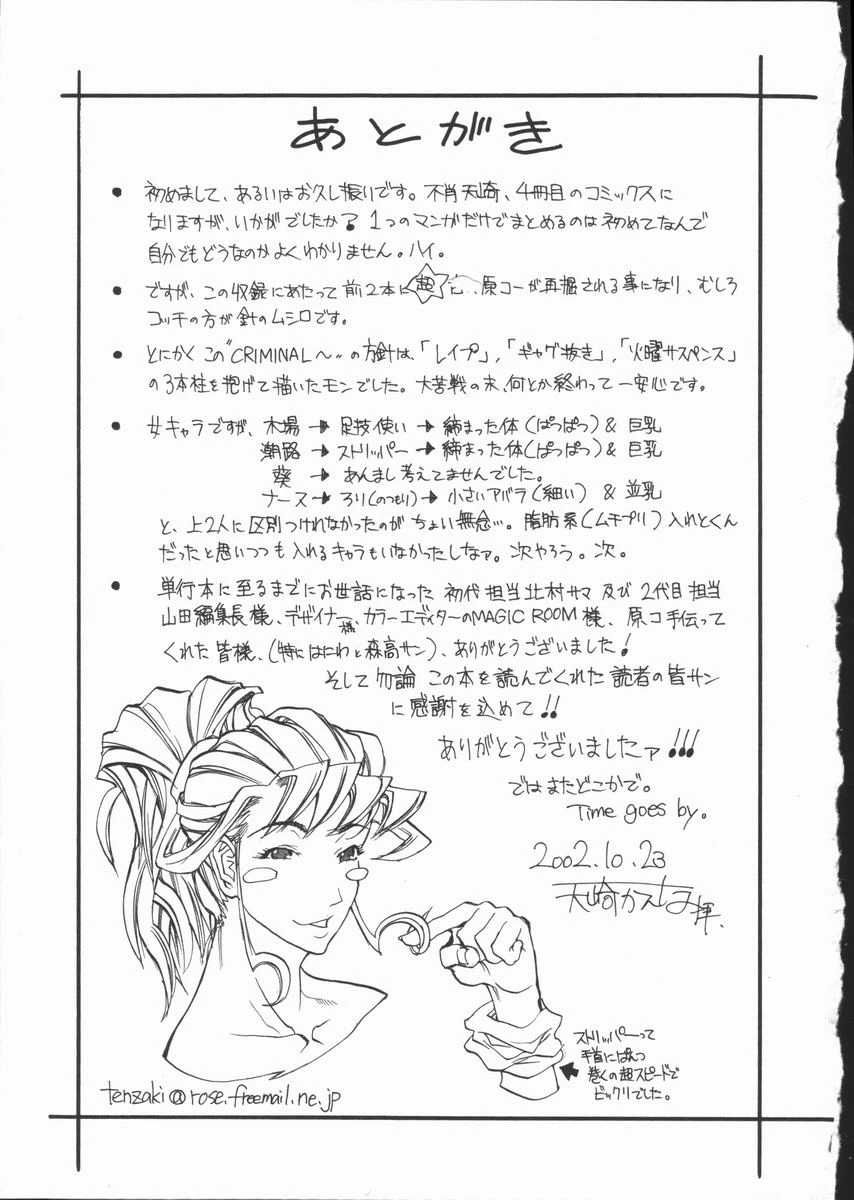 あとがき
● 初めまして、あるいはお久し振りです。不肖天崎、4冊目のコミックスに
なりますが、いかがでしたか? 1つのマンガだけでまとめるのは初めてなんで
自分でもどうなのかよくわかりません。ハイ。
● ですが、この収録にあたって前2本に 超 原コーが再掘される事になり、むしろ
コッチの方が針のムシロです。
● とにかくこの"CRIMINAL〜"の方針は、「レイプ」,「ギャグ抜き」,「火曜サスペンス」
の3本柱を掲げて描いたモンでした。大苦戦の末、何とか終わって一安心です。
● 女キャラですが、木場→足技使い→締まった体(ぱっぱつ)& 巨乳
潮路→ストリッパー→締まった体(ぱっぱつ)& 巨乳
葵→あんまし考えてませんでした。
ナース→ろり(のつもり)→小さいアバラ(細い) & 並乳
と、上2人に区別つけれなかったのがちょい無念…。脂肪系(ムチプリ)入れとくん
だったと思いつつも入れるキャラもいなかったしなァ。次やろう。次。
● 単行本に至るまでにお世話になった 初代担当北村サマ 及び 2代目担当
山田編集長様、デザイナー様、カラーエディターのMAGIC ROOM様、原コ手伝って
くれた皆様、(特にはにわと森高サン)、ありがとうございました!
そして勿論 この本を読んでくれた 読者の皆サン
に感謝を込めて!!
ありがとうございましたァ!!!
ではまたどこかで。
Time goes by.
2002.10.23
天崎かんな拝、
ストリッパーって
手首にぱんつ
巻くの超スピードで
ビックリでした。
tenzaki@rose.freemail.ne.jp